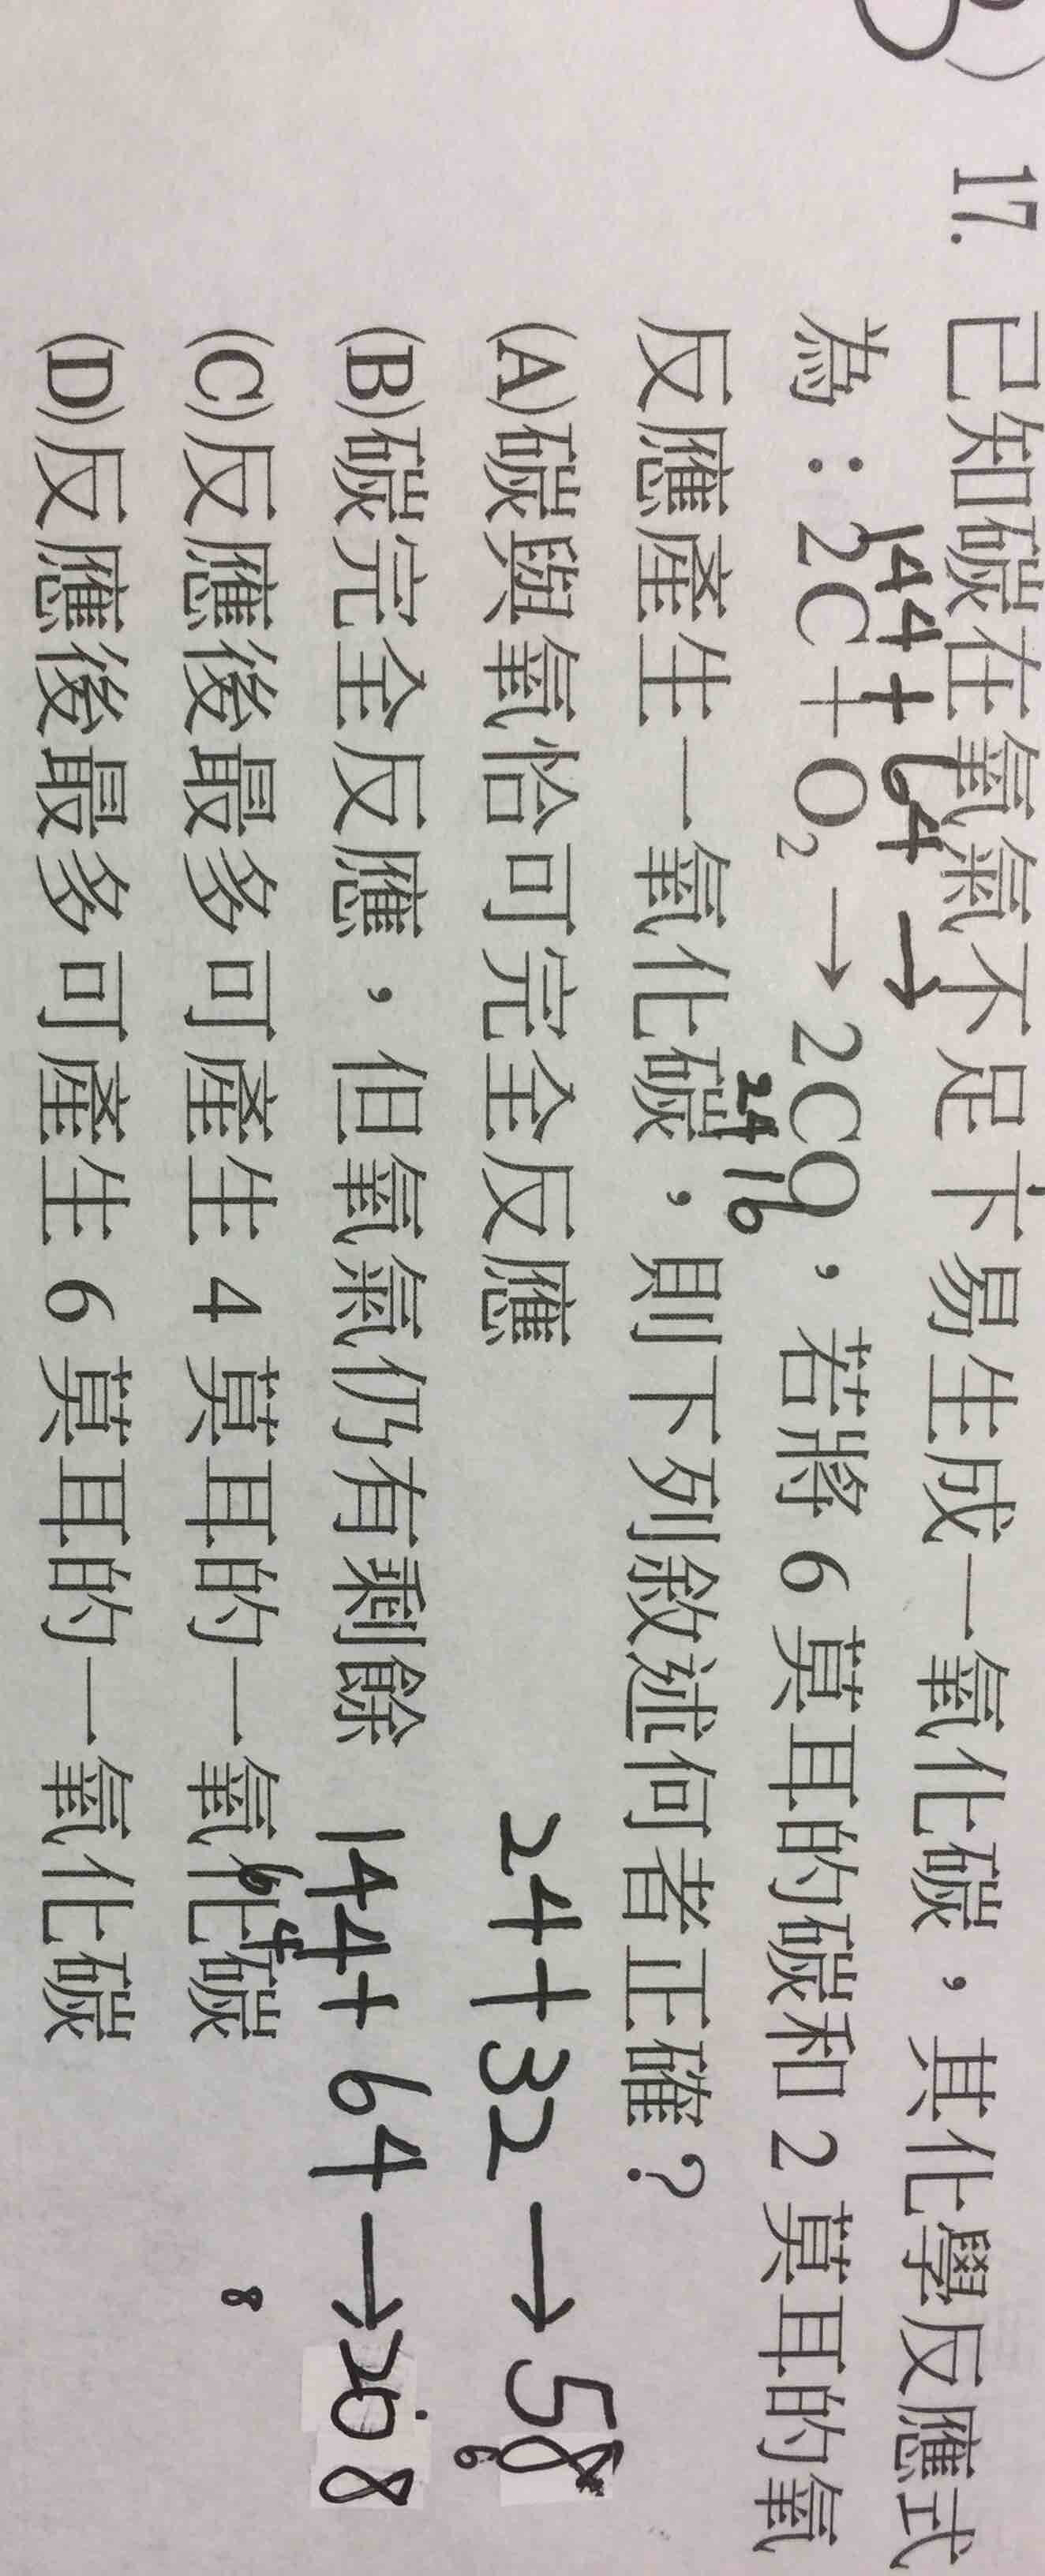 ) 17. 已知碳在氧氣不足下易生成一氧化碳，其化學反應式
144+64→
為：2C+O₂→2CO，若將 6 莫耳的碳和 2 莫耳的氧
24 16
反應產生一氧化碳，則下列敘述何者正確？
(A)碳與氧恰可完全反應
24+32→58
6
(B)碳完全反應，但氧氣仍有剩餘
144+64→208
(C)反應後最多可產生 4 莫耳的一氧化碳
64
8
(D)反應後最多可產生 6 莫耳的一氧化碳